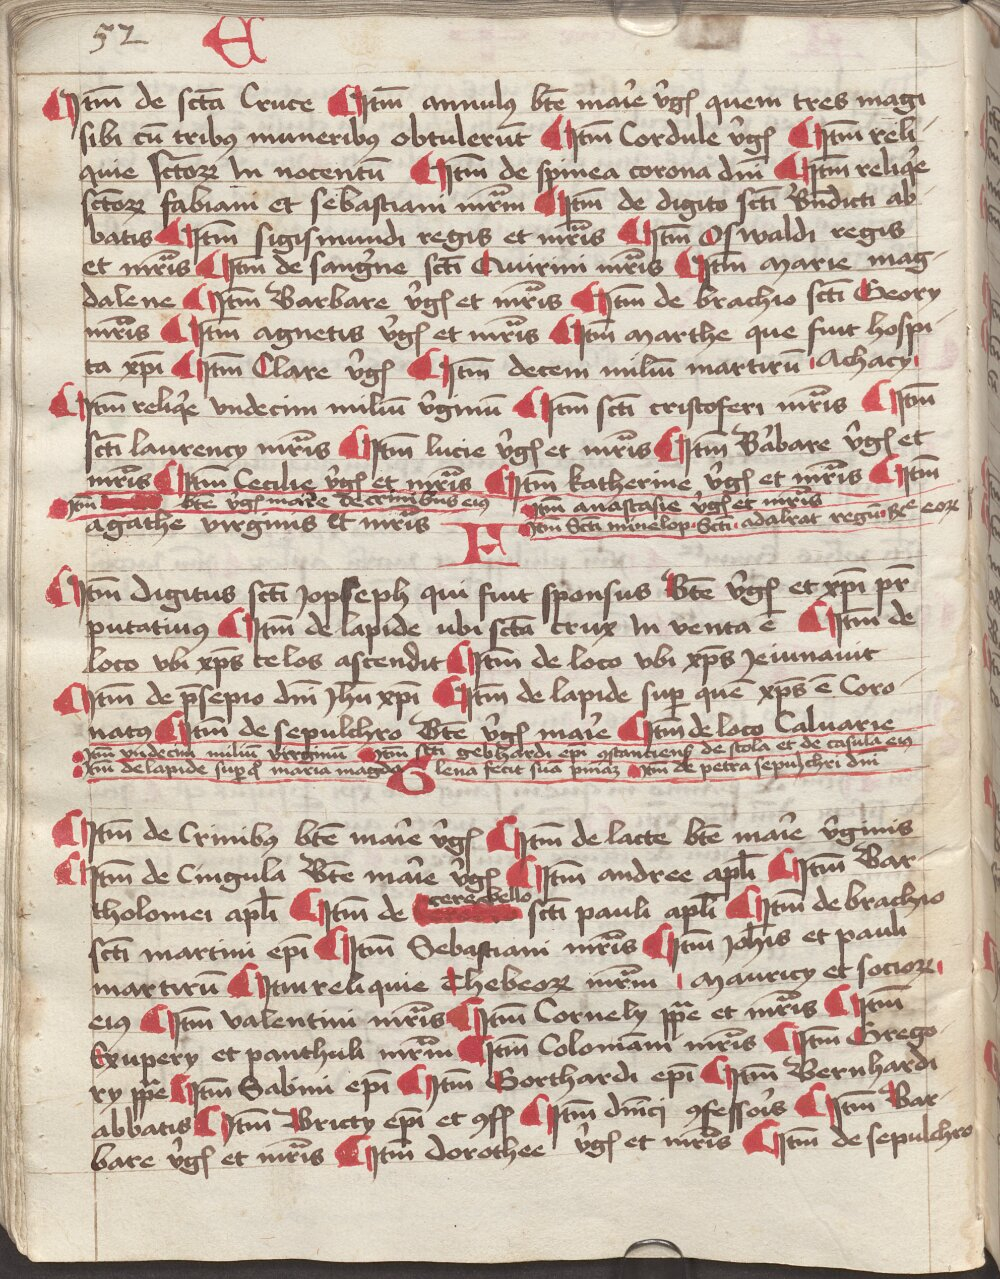 52 E
Itm̄ de sctā Cruce Itm̄ annulꝰ btē marie v̄gis quem tres magi
sibi cū tribus muneribꝰ obtulerūt Itm̄ Cordule v̄gis Itm̄ reli
quie sctoꝝ In nocentū Itm̄ de spinea corona dni Itm̄ reliqͥe
sctoꝝ fabiani et sebastiani mr̄m Itm̄ de digito scti Bn̄dicti ab
batis Itm̄ sigismundi regis et mr̄is Itm̄ Oswaldi regis
et mr̄is Itm̄ de sangͥne scti Quirini mr̄is Itm̄ Marie mag-
dalene Itm̄ Barbare v̄gis et mr̄is Itm̄ de brachio scti Geory
mr̄is Itm̄ agnetis v̄gis et mr̄is Itm̄ Marthe que fuit hospi
ta xp̄i Itm̄ Clare v̄gis Itm̄ decem miliū martirū Achacy
Itm̄ reliqͥe vndecim miliū v̄giniū Itm̄ scti cristoferi mr̄is Itm̄
scti laurency mr̄is Itm̄ lucie v̄gis et mr̄is Itm̄ Barbare v̄gis et
mr̄is Itm̄ Cecilie v̄gis et mr̄is Itm̄ katherine v̄gis et mr̄is Itm̄
Itm̄ btē v̄gis marie de crinibus eiꝰ Itm̄ anastasie v̄gis et mr̄is
agathe virginis Et mr̄is Itm̄ Scti minelop Scti adalrat regū
F
Itm̄ digitus scti Jopseph qui fuit sponsus Btē v̄gis et xp̄i pr̄
putatiuꝰ Itm̄ de lapide ubi sctā crux In venta ē Itm̄ de
loco vbi xp̄s celos ascendit Itm̄ de loco vbi xp̄s Jeiunauit
Itm̄ de p̄sepio dni Jhū xp̄i Itm̄ de lapide sup quē xp̄s ē Coro
natꝰ Itm̄ de sepulchro Btē v̄gis marie Itm̄ de loco Caluarie
Itm̄ vndecim miliū virginum Itm̄ scti gebhardi epi ꝯstanciens̄ de stola et de casula eiꝰ
Itm̄ de lapide sup q̄ maria magda lena fecit suā pn̄iaz Itm̄ de petra sepulchri dni
G
Itm̄ de Crinibꝰ btē marie v̄gis Itm̄ de lacte btē marie v̄ginis
Itm̄ de Cinguli Btē marie v̄gis Itm̄ andree apl̄i Itm̄ Bar-
tholomei apl̄i Itm̄ de cerebello scti pauli apl̄i Itm̄ de brachio
scti martini epi Itm̄ Sebastiani mr̄is Itm̄ Joh̄is et pauli
martirū Itm̄ reliquie Thebeoꝝ mr̄m Mauricy et socioꝝ
eiꝰ Itm̄ valentini mr̄is Itm̄ Cornely pp̄e et mr̄is Itm̄
Exupery et panthuli mr̄m Itm̄ Colomani mr̄is Itm̄ Grego
ry pp̄e Itm̄ Sabini epi Itm̄ Gotthardi epi Itm̄ Bernhardi
abbatis Itm̄ Bricty epi et ꝯf Itm̄ dn̄ici ꝯfessoris Itm̄ Bar-
bare v̄gis et mr̄is Itm̄ dorothee v̄gis et mr̄is Itm̄ de sepulchro